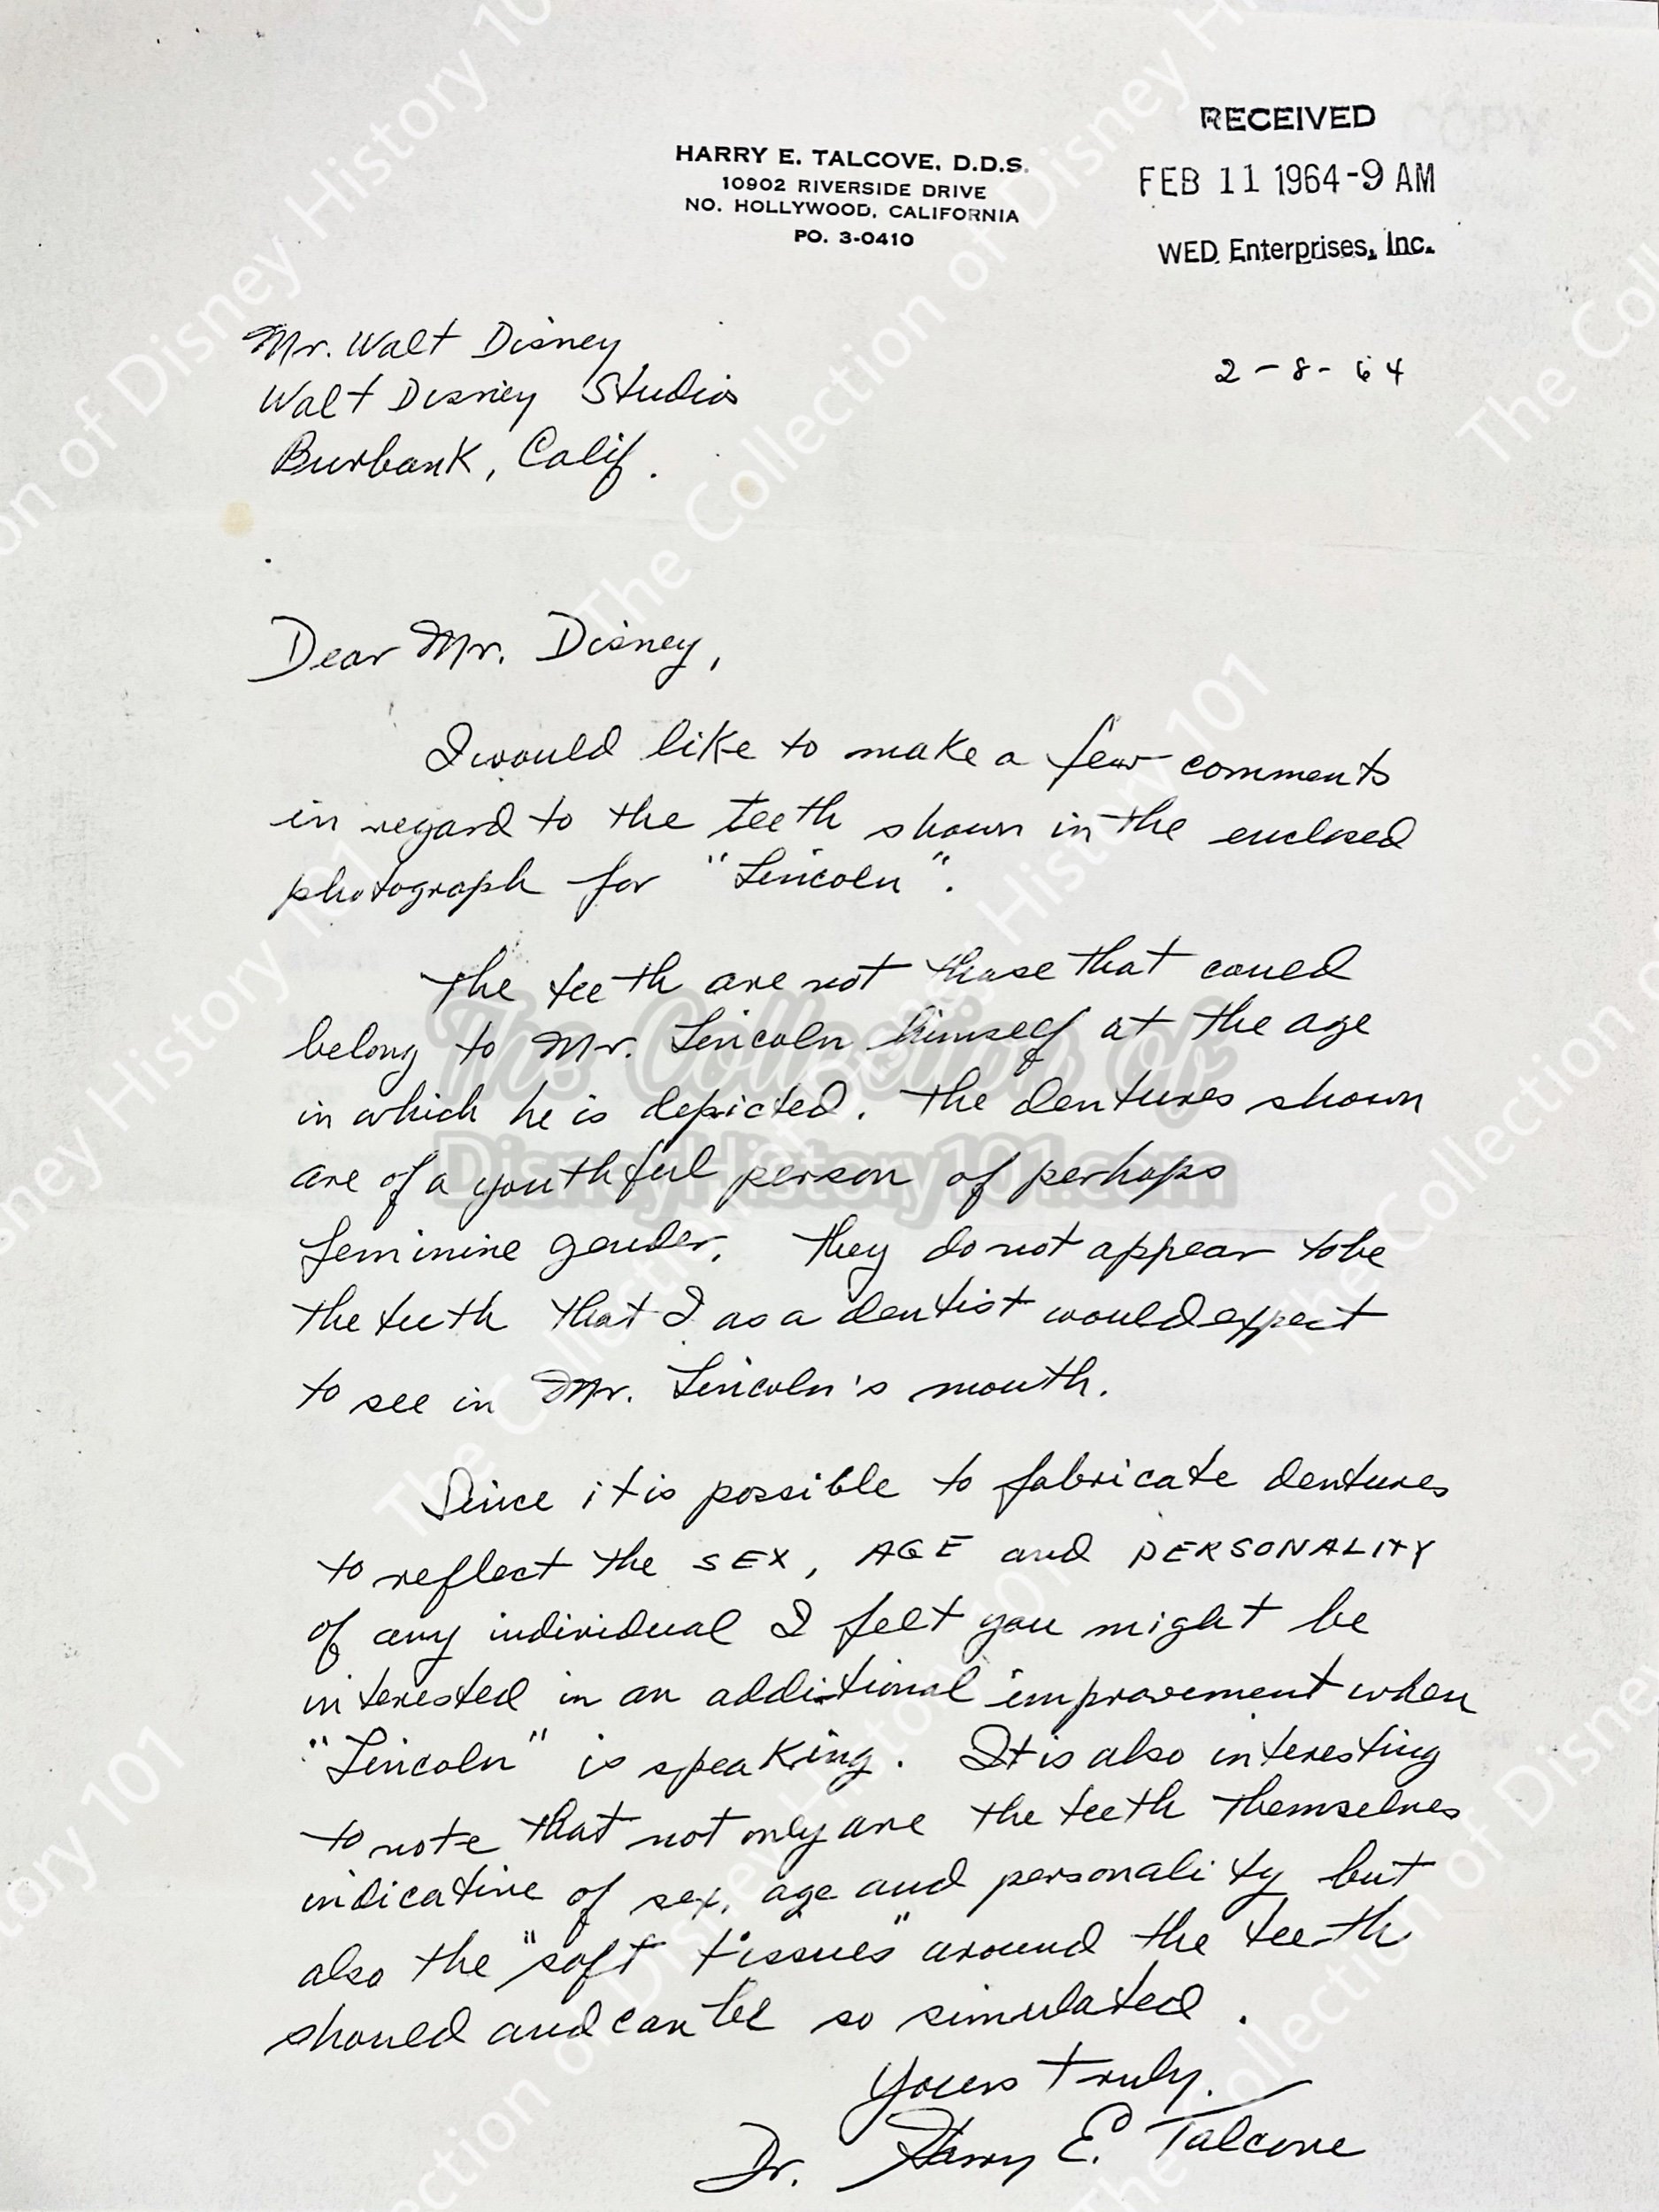 HARRY E. TALCOVE, D.D.S.
10902 RIVERSIDE DRIVE
NO. HOLLYWOOD, CALIFORNIA
PO. 3-0410
RECEIVED
FEB 11 1964-9 AM
WED Enterprises, Inc.
Mr. Walt Disney
Walt Disney Studios
Burbank, Calif.
2-8-64
Dear Mr. Disney,
I would like to make a few comments
in regard to the teeth shown in the enclosed
photograph for "Lincoln".
The teeth are not those that could
belong to Mr. Lincoln himself at the age
in which he is depicted. The dentures shown
are of a youthful person of perhaps
feminine gender. They do not appear to be
the teeth that I as a dentist would expect
to see in Mr. Lincoln's mouth.
Since it is possible to fabricate dentures
to reflect the SEX, AGE and PERSONALITY
of any individual I felt you might be
interested in an additional improvement when
"Lincoln" is speaking. It is also interesting
to note that not only are the teeth themselves
indicative of sex, age and personality but
also the "soft tissues" around the teeth
should and can be so simulated.
Yours truly,
Dr. Harry E. Talcove
The Collection of
DisneyHistory101.com
The Collection of Disney History 101